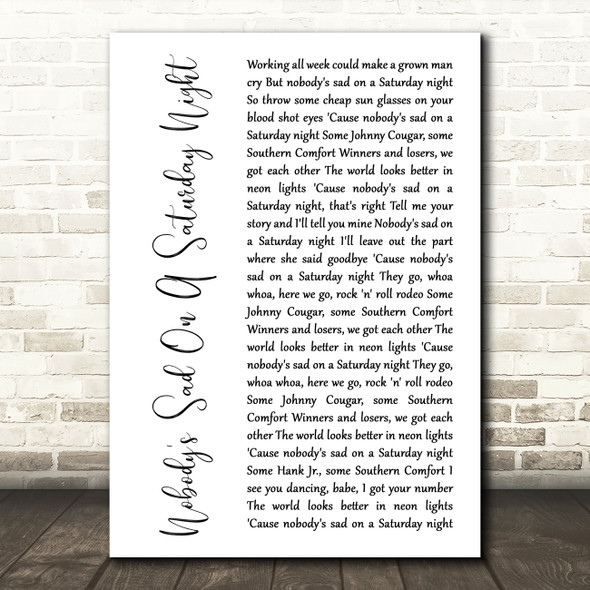 Nobody's Sad On A Saturday Night
Working all week could make a grown man
cry But nobody's sad on a Saturday night
So throw some cheap sun glasses on your
blood shot eyes 'Cause nobody's sad on a
Saturday night Some Johnny Cougar, some
Southern Comfort Winners and losers, we
got each other The world looks better in
neon lights 'Cause nobody's sad on a
Saturday night, that's right Tell me your
story and I'll tell you mine Nobody's sad on
a Saturday night I'll leave out the part
where she said goodbye 'Cause nobody's
sad on a Saturday night They go, whoa
whoa, here we go, rock 'n' roll rodeo Some
Johnny Cougar, some Southern Comfort
Winners and losers, we got each other The
world looks better in neon lights 'Cause
nobody's sad on a Saturday night They go,
whoa whoa, here we go, rock 'n' roll rodeo
Some Johnny Cougar, some Southern
Comfort Winners and losers, we got each
other The world looks better in neon lights
'Cause nobody's sad on a Saturday night
Some Hank Jr., some Southern Comfort I
see you dancing, babe, I got your number
The world looks better in neon lights
'Cause nobody's sad on a Saturday night